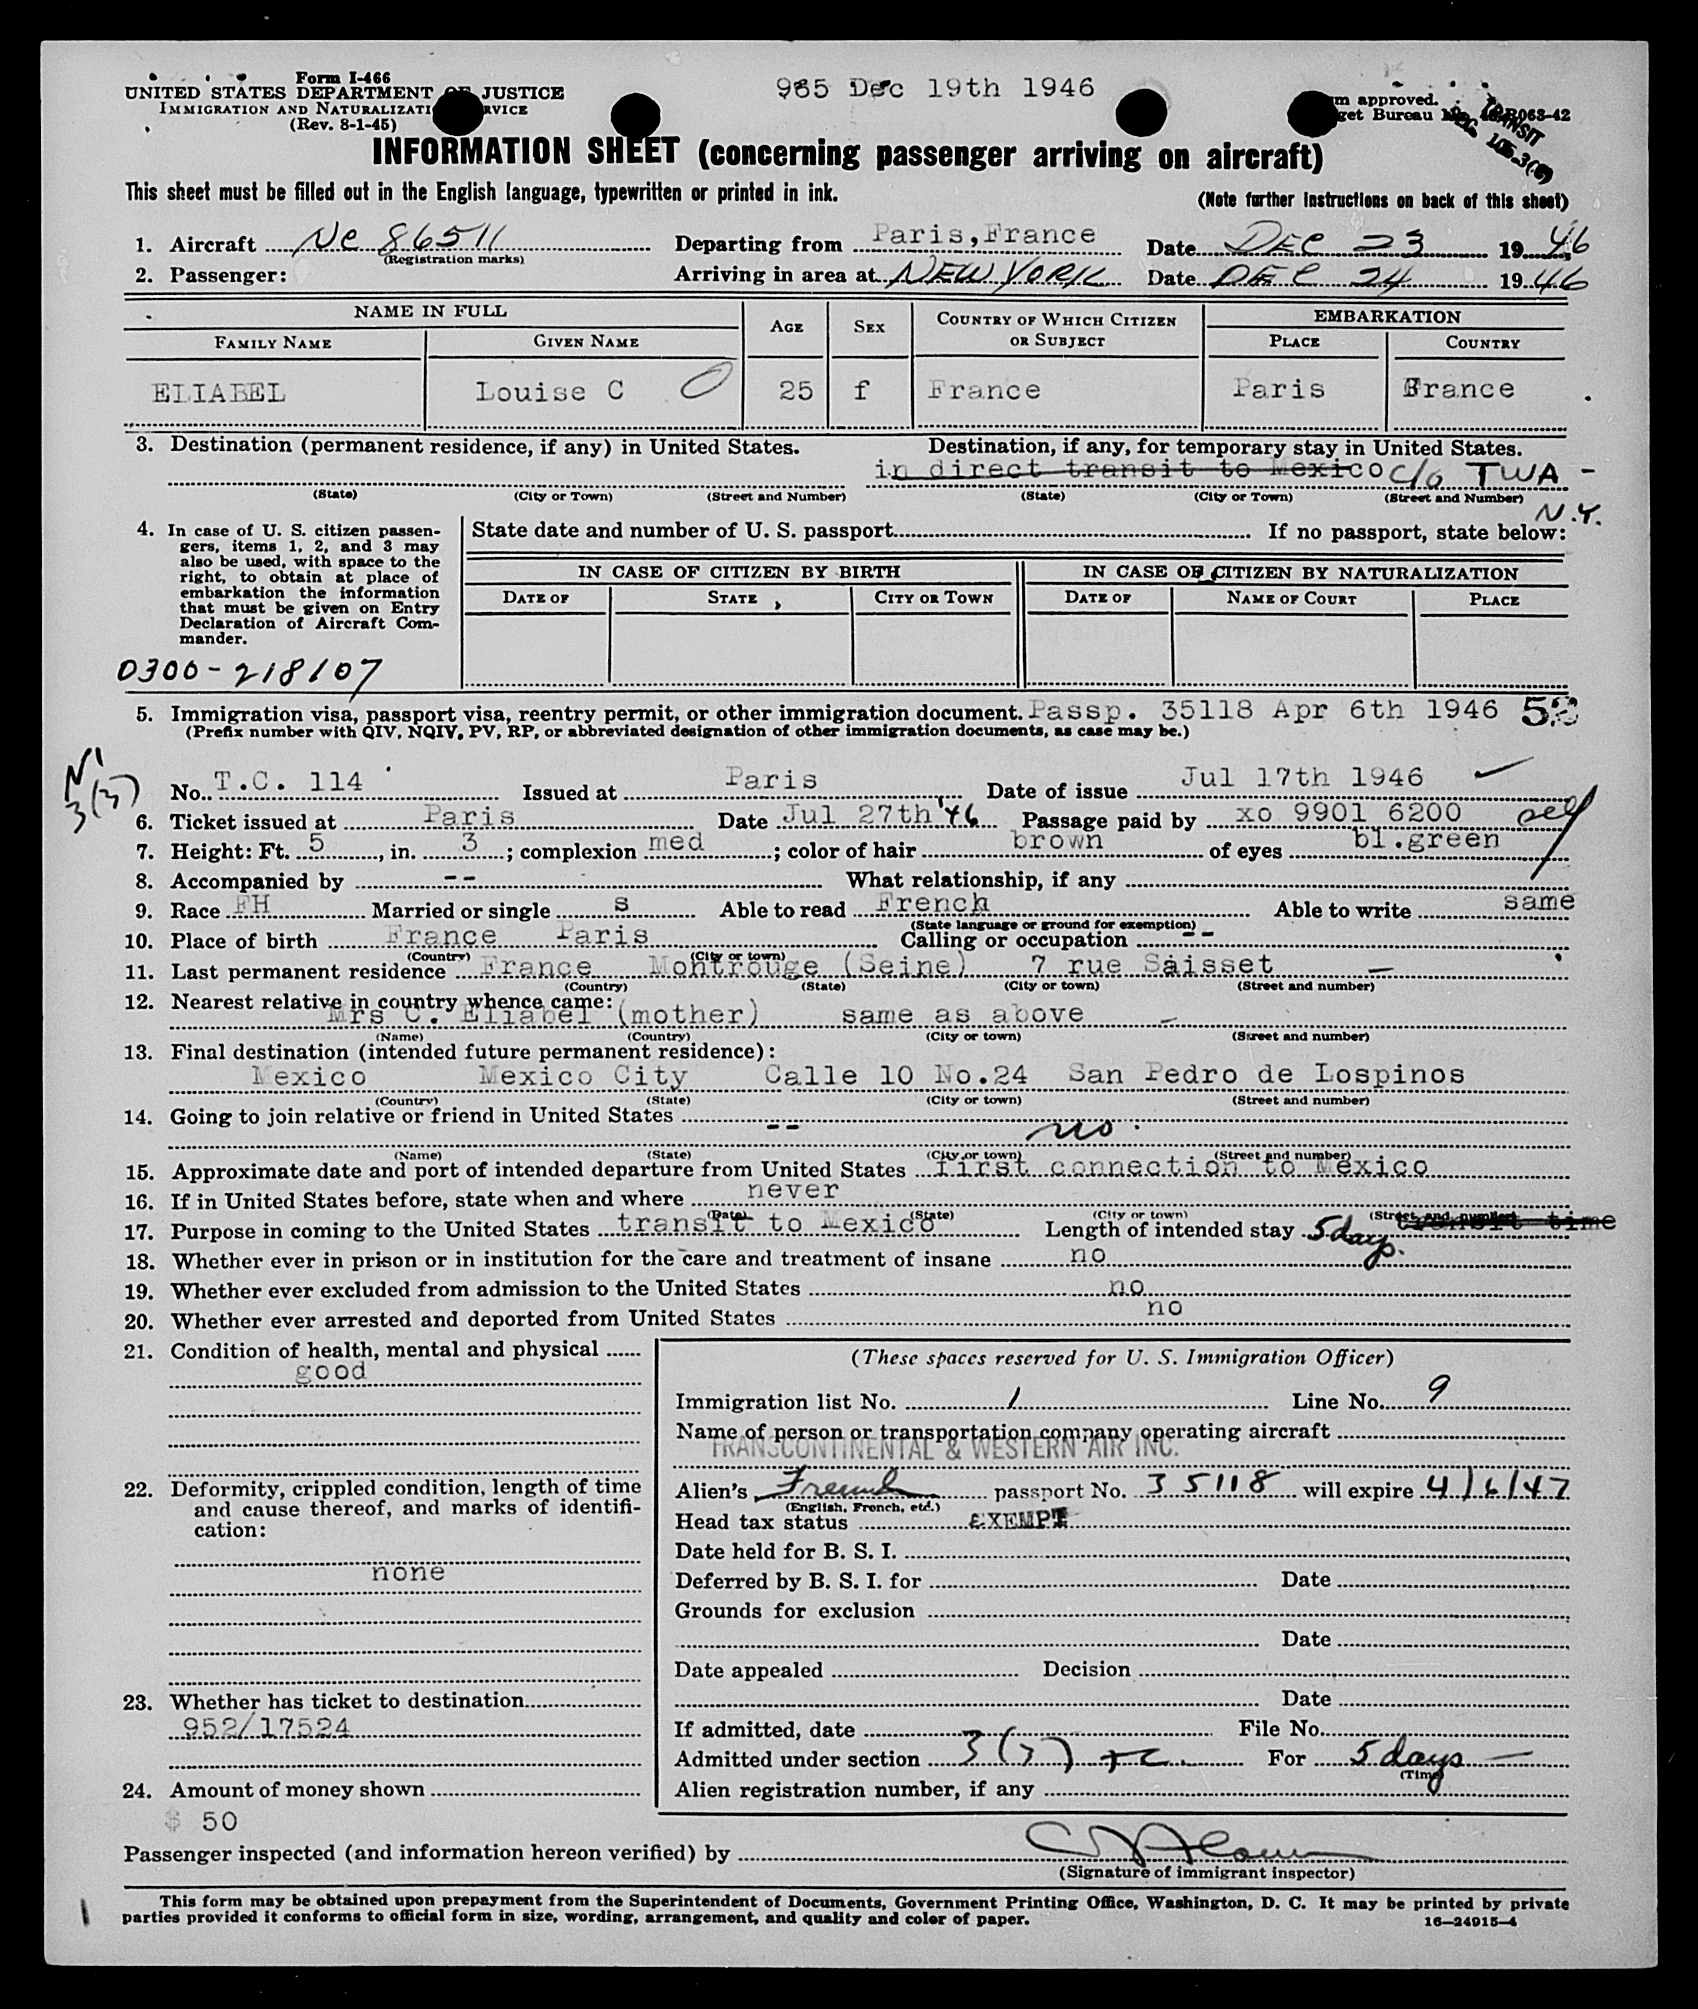 Form I-466
UNITED STATES DEPARTMENT OF JUSTICE
965 Dec 19th 1946
IMMIGRATION AND NATURALIZATI RVICE
(Rev. 8-1-45)
m approved.
get Bureau No. 43-R063-42
TRANSIT
INFORMATION SHEET (concerning passenger arriving on aircraft)
This sheet must be filled out in the English language, typewritten or printed in ink.
(Note further instructions on back of this sheet)
1. Aircraft Nc 86511 Departing from Paris,France Date DEC 23 1946
(Registration marks)
2. Passenger: Arriving in area at NEW YORK Date DEC 24 1946
NAME IN FULL AGE SEX COUNTRY OF WHICH CITIZEN OR SUBJECT EMBARKATION
FAMILY NAME GIVEN NAME PLACE COUNTRY
ELIABEL Louise C 25 f France Paris France
3. Destination (permanent residence, if any) in United States. Destination, if any, for temporary stay in United States.
in direct transit to Mexico c/o TWA -
(State) (City or Town) (Street and Number) (State) (City or Town) (Street and Number)
N.Y.
4. In case of U. S. citizen passen-
gers, items 1, 2, and 3 may
also be used, with space to the
right, to obtain at place of
embarkation the information
that must be given on Entry
Declaration of Aircraft Com-
mander.
State date and number of U. S. passport If no passport, state below:
IN CASE OF CITIZEN BY BIRTH IN CASE OF CITIZEN BY NATURALIZATION
DATE OF STATE CITY OR TOWN DATE OF NAME OF COURT PLACE
0300-218107
5. Immigration visa, passport visa, reentry permit, or other immigration document. Passp. 35118 Apr 6th 1946
(Prefix number with QIV, NQIV, PV, RP, or abbreviated designation of other immigration documents, as case may be.)
3(3)
No. T.C. 114 Issued at Paris Date of issue Jul 17th 1946
6. Ticket issued at Paris Date Jul 27th '46 Passage paid by xo 9901 6200 self
7. Height: Ft. 5, in. 3; complexion med; color of hair brown of eyes bl.green
8. Accompanied by -- What relationship, if any
9. Race FH Married or single s Able to read French Able to write same
(State language or ground for exemption)
10. Place of birth France Paris Calling or occupation --
(Country) (City or town)
11. Last permanent residence France Montrouge (Seine) 7 rue Saisset
(Country) (State) (City or town) (Street and number)
12. Nearest relative in country whence came:
Mrs C. Eliabel (mother) same as above
(Name) (Country) (City or town) (Street and number)
13. Final destination (intended future permanent residence):
Mexico Mexico City Calle 10 No.24 San Pedro de Lospinos
(Country) (State) (City or town) (Street and number)
14. Going to join relative or friend in United States --
no
(Name) (State) (City or town) (Street and number)
15. Approximate date and port of intended departure from United States first connection to Mexico
16. If in United States before, state when and where never
(Date) (State) (City or town) (Street and number)
17. Purpose in coming to the United States transit to Mexico Length of intended stay 5 days. transit time
18. Whether ever in prison or in institution for the care and treatment of insane no
19. Whether ever excluded from admission to the United States no
20. Whether ever arrested and deported from United States no
21. Condition of health, mental and physical
good
22. Deformity, crippled condition, length of time
and cause thereof, and marks of identifi-
cation:
none
23. Whether has ticket to destination
952/17524
24. Amount of money shown
$ 50
(These spaces reserved for U. S. Immigration Officer)
Immigration list No. 1 Line No. 9
Name of person or transportation company operating aircraft
TRANSCONTINENTAL & WESTERN AIR INC.
Alien's French passport No. 35118 will expire 4/6/47
(English, French, etc.)
Head tax status EXEMPT
Date held for B. S. I.
Deferred by B. S. I. for Date
Grounds for exclusion
Date
Date appealed Decision
Date
If admitted, date File No.
Admitted under section 3(3) For 5 days
(Time)
Alien registration number, if any
Passenger inspected (and information hereon verified) by
(Signature of immigrant inspector)
This form may be obtained upon prepayment from the Superintendent of Documents, Government Printing Office, Washington, D. C. It may be printed by private
parties provided it conforms to official form in size, wording, arrangement, and quality and color of paper.
16—24915-4